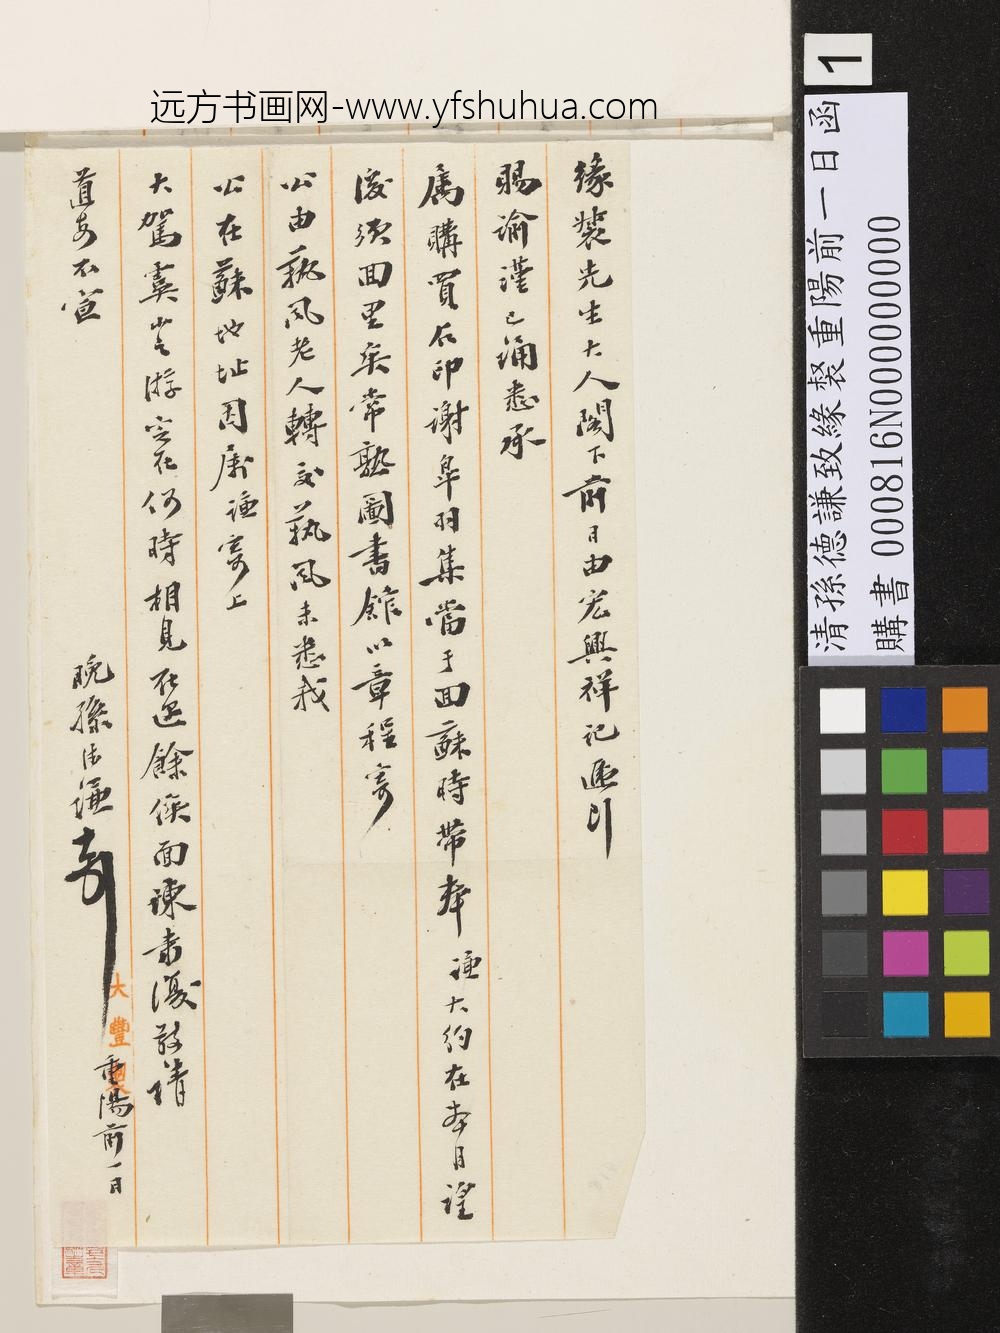 远方书画网-www.yfshuhua.com
1
清孫德謙致緣裻重陽前一日函
購書 000816N000000000
緣裻先生大人閣下前日由宏興祥記遞到
賜諭謹已誦悉承
属購買石印謝皐羽集當于回蘇時帶奉謙大約在本月望
後須回里矣常熟圖書館以章程寄
公由執風老人轉交執風未悉我
公在蘇地址囙屬謙寄上
大駕虞山之游定在何時相見在邇餘俟面陳耑復敬請
道安不宣
晚孫德謙
重陽前一日
大豐